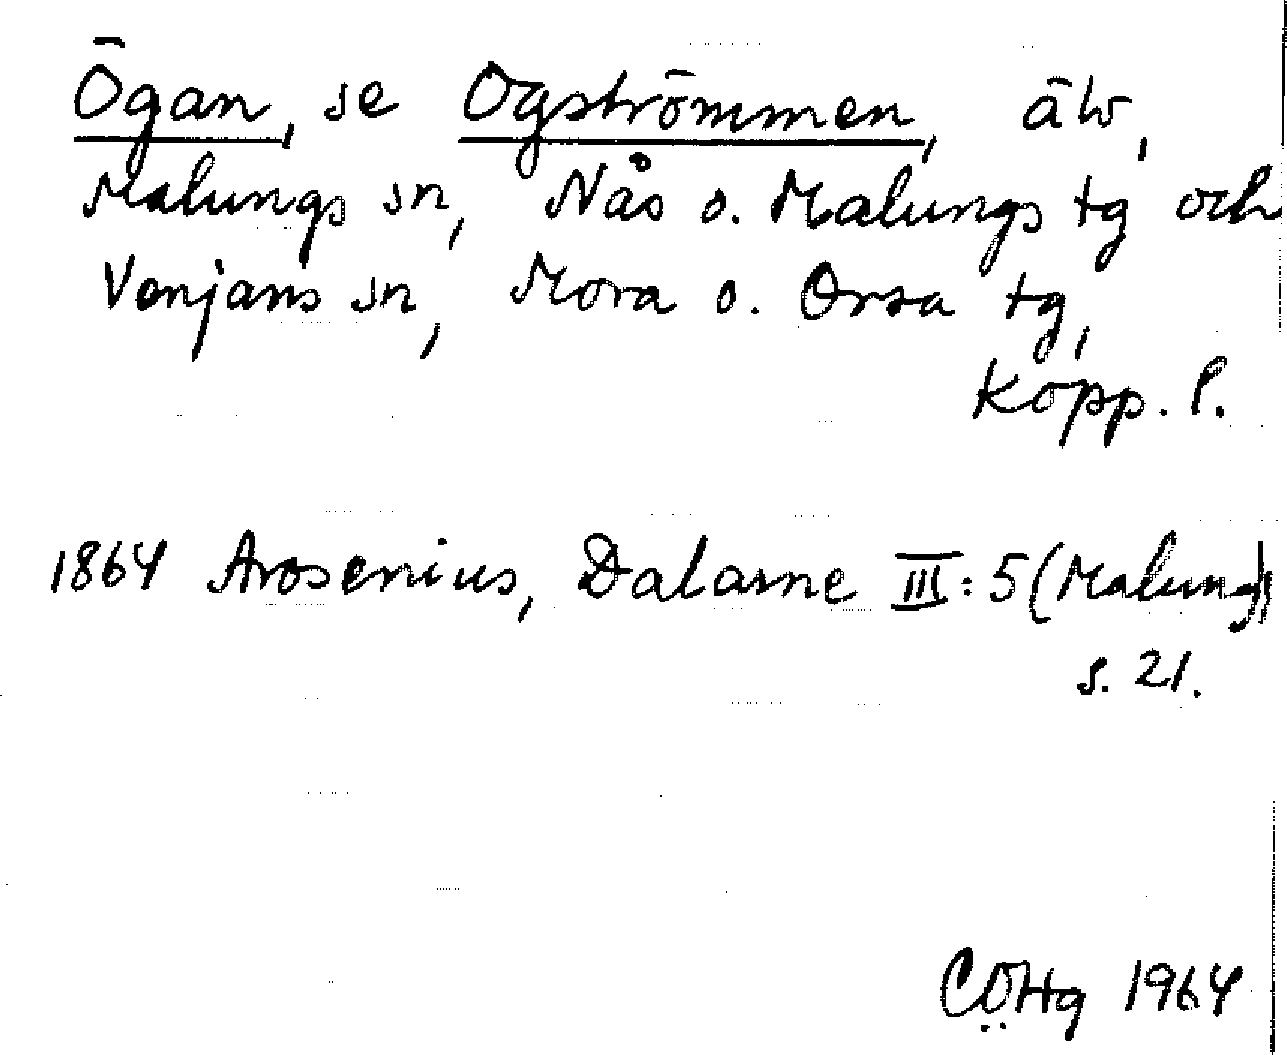 Ögan, se Ogströmmen, älv,
Malungs sn, Nås o. Malungs tg och
Venjans sn, Mora o. Orsa tg,
Kopp. l.
1864 Arosenius, Dalarne III:5 (Malung)
s. 21.
CÖHg 1964